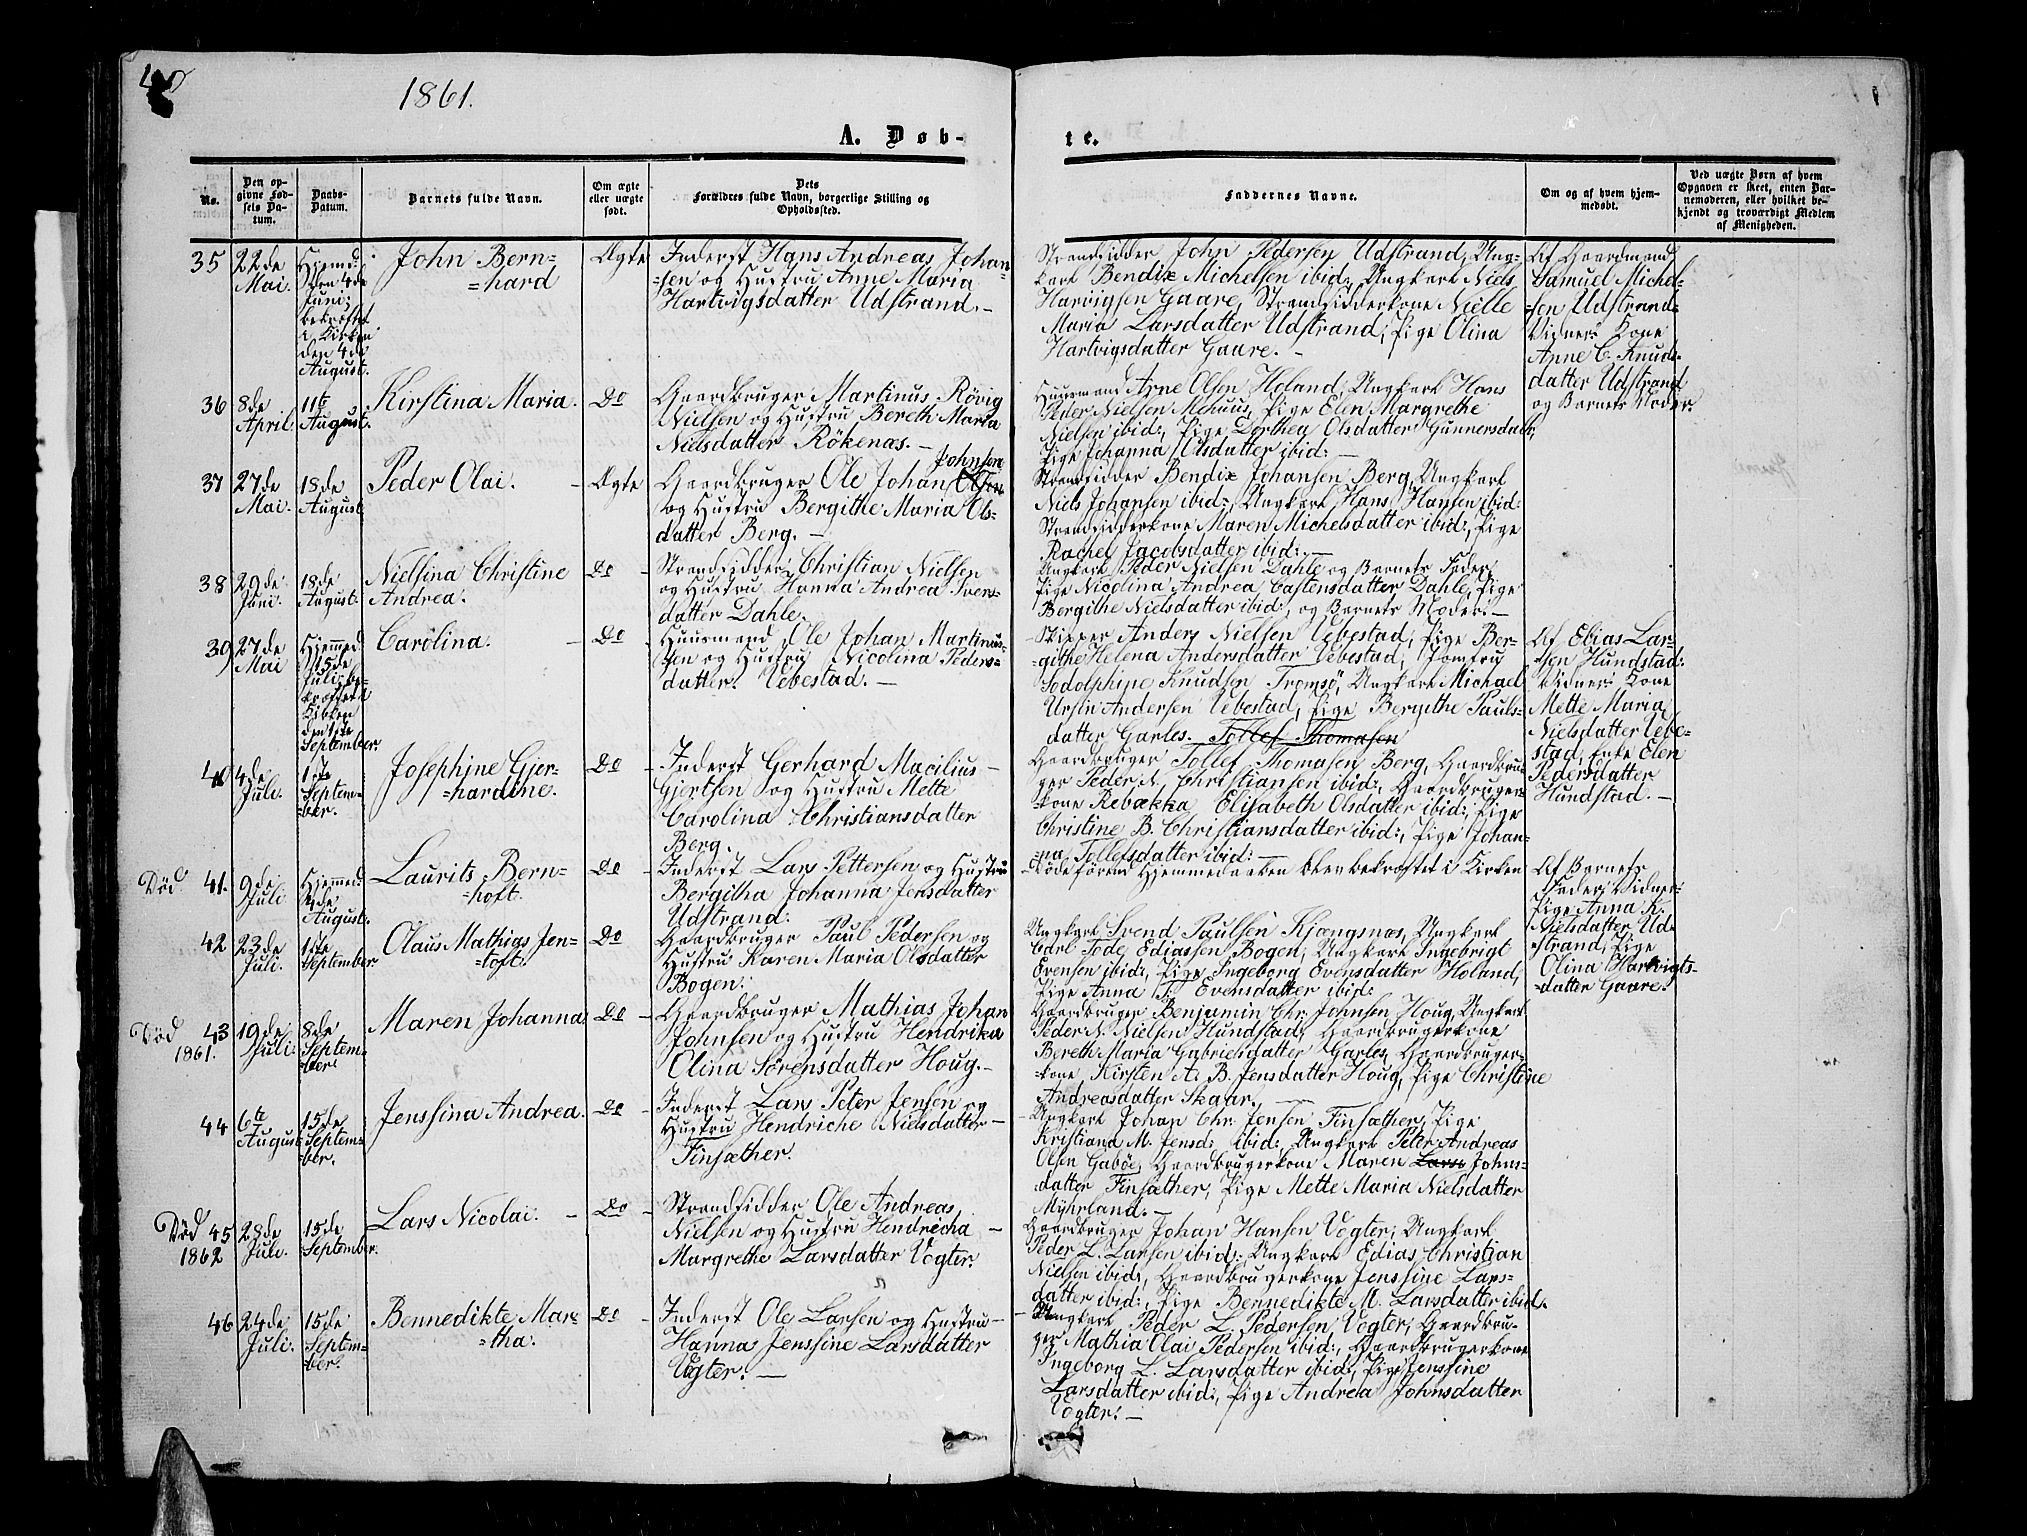 40
1861.
A. Døb-
te.
No.
Den op-
givne Fød-
sels Da-
tum.
Daabs-
Datum.
Barnets fulde Navn.
Om ægte
eller uægte
født.
Dets
Forældres fulde Navn, borgerlige Stilling og
Opholdssted.
Faddernes Navne.
Om og af hvem hjem-
medøbt.
Ved uægte Børn af hvem
Opgaven er skeet, enten Bar-
nemoderen, eller hvilket be-
kjendt og troværdigt Medlem
af Menigheden.
35
22de
Mai.
Hjemd:
den 4de
Juni;
bekræftet
i Kirken
den 4de
August.
John Bern=
=hard
Ægte
Inderst Hans Andreas Johan-
=sen og Hustru Anne Maria
Hartvigsdatter Udstrand. -
Strandsidder John Pedersen Udstrand, Ung-
karl Bendix Michelsen ibid:, Ungkarl Niels
Harvigsen Gaare, Strandsidderkone Nielle
Maria Larsdatter Udstrand; Pige Olina
Hartvigsdatter Gaare. -
Af Gaardmand
Samuel Michel-
=sen Udstrand.
Vidner: Kone
Anne C. Knuds-
datter Udstrand
og Barnets Moder.
36
8de
April.
11te
August.
Kirstina Maria.
Do
Gaardbruger Martinus Rövig
Nielsen og Hustru Bereth Maria
Nielsdatter Rökenæs. -
Huusmand Arne Olsen Holand; Ungkarl Hans
Peder Nielsen Mehuus, Pige Elen Margrethe
Nielsen ibid:, Pige Dorthea Olsdatter Gunnersdatt,
Pige Johanna Olsdatter ibid: -
37
27de
Mai.
18de
August.
Peder Olai. -
Ægte
Johnsen
Gaardbruger Ole Johan Olsen
og Hustru Bergithe Maria Ols-
datter Berg. -
Strandsidder Bendix Johansen Berg, Ungkarl
Niels Johansen ibid:, Ungkarl Hans Hansen ibid:
Strandsidderkone Maren Michelsdatter ibid:, Pige
Rachel Jacobsdatter ibid:. -
38
29de
Juni.
18de
August.
Nielsina Christine
Andrea.
Do -
Strandsidder Christian Nielsen
og Hustru Hanna Andrea Ivers-
datter Dahle.
Ungkarl Peder Nielsen Dahle og Barnets Fader
Pige Nicolina Andrea Castensdatter Dahle, Pige
Bergithe Nielsdatter ibid:, og Barnets Moder: -
39
27de
Mai
Hjemmed:
15de
Juli; be-
kræftet i
Kirken
den 1ste
September
Carolina. -
Do -
Huusmand Ole Johan Martinus-
sen og Hustru Nicolina Peders-
datter. Uebestad. -
Skipper Anders Nielsen Uebestad; Pige Ber-
=githe Helena Andersdatter Uebestad, Jomfru
Dodolphine Knudsen Tromsö, Ungkarl Michael
Ursin Andersen Uebestad, Pige Bergithe Pauls-
datter Garles. Tollef Thomasen
Af Elias Lar-
=sen Hundstad:
Vidner: Kone
Mette Maria
Nielsdatter Uebe-
stad, Enke Elen
Pedersdatter
Hundstad. -
40
4de
Juli.
1ste
Septem-
=ber.
Josephine Gjer-
=hardine.
Do
Inderst Gerhard Macilius -
Gjertsen og Hustru Mette
Carolina Christiansdatter
Berg.
Gaardbruger Tollef Thomasen Berg, Gaardbru-
ger Peder N. Christiansen ibid:, Gaardbruger-
=kone Rebækka Elisabeth Olsdatter ibid:, Pige
Christine B. Christiansdatter ibid:, Pige Johan-
=na Tollefsdatter ibid: -
Död. 41.
9de
Juli
Hjemmed:
1de
August.
Laurits Bern-
=hoft.
Do
Inderst Lars Pettersen og Hustru
Bergitha Johanna Jensdatter
Udstrand:
Døde förend Hjemmedaaben blev bekræftet i Kirken
Af Barnets
Fader: Vidner:
Pige Anna K.
Nielsdatter Ud-
strand, Pige
Olina Hartvigts-
=datter Gaare.
42
23de
Juli.
1ste
September
Olaus Mathias Jen-
=toft.
Do
Gaardbruger Paul Pedersen og
Hustru Karen Maria Olsdatter
Bogen:
Ungkarl Svend Paulsen Kjængsnæs, Ungkarl
Carl Tode Ediassen Bogen, Ungkarl Ingebrigt
Evensen ibid:, Pige Ingeborg Evensdatter Holand,
Pige Anna T. Evensdatter ibid:
Död 43
1861.
19de
Juli:
8de
Septem-
ber
Maren Johanna.
Do -
Gaardbruger Mathias Johan
Johnsen og Hustru Hendrika
Olina Sörensdatter Houg. -
Gaardbruger Benjamin Chr. Johnsen Houg, Ungkarl
Peder N. Nielsen Hundstad, Gaardbrugerkone
Bereth Maria Gabrielsdatter Garles, Gaardbruger-
=kone Kirsten A. B. Jensdatter Houg, Pige Christine
Andreasdatter Skaar. -
44
6te
August
15de
Septem-
ber.
Jenssina Andrea.
Do
Inderst Lars Peter Jensen og
Hustru Hendriche Nielsdatter -
Finsæther.
Ungkarl Johan Chr. Jensen Finsæther, Pige
Kristiana M. Jensd: ibid:, Ungkarl Peter Andreas
Olsen Gaböe, Gaardbrugerkone Maren Lars Johns-
datter Finsæther, Pige Mette Maria Nielsdatter
Myhrland. -
Död 45
1862
28de
Juli.
15de
September.
Lars Nicolai. -
Do
Strandsidder Ole Andreas
Nielsen og Hustru Hendricha -
Margrethe Larsdatter Vogter.
Gaardbruger Johan Hansen Vogter, Ungkarl
Peder L. Larsen ibid:, Ungkarl Edias Christian
Nielsen ibid:, Gaardbrugerkone Jenssine Lars-
datter ibid:, Pige Bennedikte M. Larsdatter ibid.
46
24de
Juli.
15de
Septem-
ber.
Bennedikte Mar-
=tha.
Do
Inderst Ole Larsen og Hustru -
Hanna Jenssine Larsdatter
Vogter. -
Ungkarl Peder L. Pedersen Vogter, Gaardbru-
ger Mathia Olai Pedersen ibid:, Gaardbrugerkone
Ingeborg L. Larsdatter ibid:, Pige Jenssine
Larsdatter ibid:, Pige Andrea Johnsdatter
Vogter. -